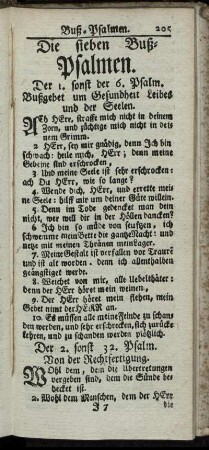 Buß-Psalmen. 205
Die sieben Buß-
Psalmen.
Der 1. sonst der 6. Psalm.
Bußgebet um Gesundheit Leibes
und der Seelen.
Ach HErr, straffe mich nicht in deinem
Zorn, und züchtige mich nicht in dei-
nem Grimm.
2. HErr, sey mir gnädig, denn Ich bin
schwach: heile mich, HErr; denn meine
Gebeine sind erschrocken,
3. Und meine Seele ist sehr erschrocken:
ach Du HErr, wie so lange?
4. Wende dich, HErr, und errette mei-
ne Seele: hilff mir um deiner Güte willen.
5. Denn im Tode gedencket man dein
nicht, wer will dir in der Höllen dancken?
6. Ich bin so müde von seufzen, ich
schwemme mein Bette die gantze Nacht: und
netze mit meinen Thränen mein Lager.
7. Meine Gestalt ist verfallen vor Trauren
und ist alt worden: denn ich allenthalben
geängstiget werde.
8. Weichet von mir, alle Ubelthäter:
denn der HErr höret mein weinen,
9. Der HErr höret mein flehen, mein
Gebet nimt der HERR an.
10. Es müssen alle meine Feinde zu schan-
den werden, und sehr erschrecken, sich zurücke
kehren, und zu schanden werden plötzlich.
Der 2. sonst 32. Psalm.
Von der Rechtfertigung.
Wohl dem, dem die Ubertretungen
vergeben sind, dem die Sünde be-
decket ist.
2. Wohl dem Menschen, dem der HErr
J 7 die